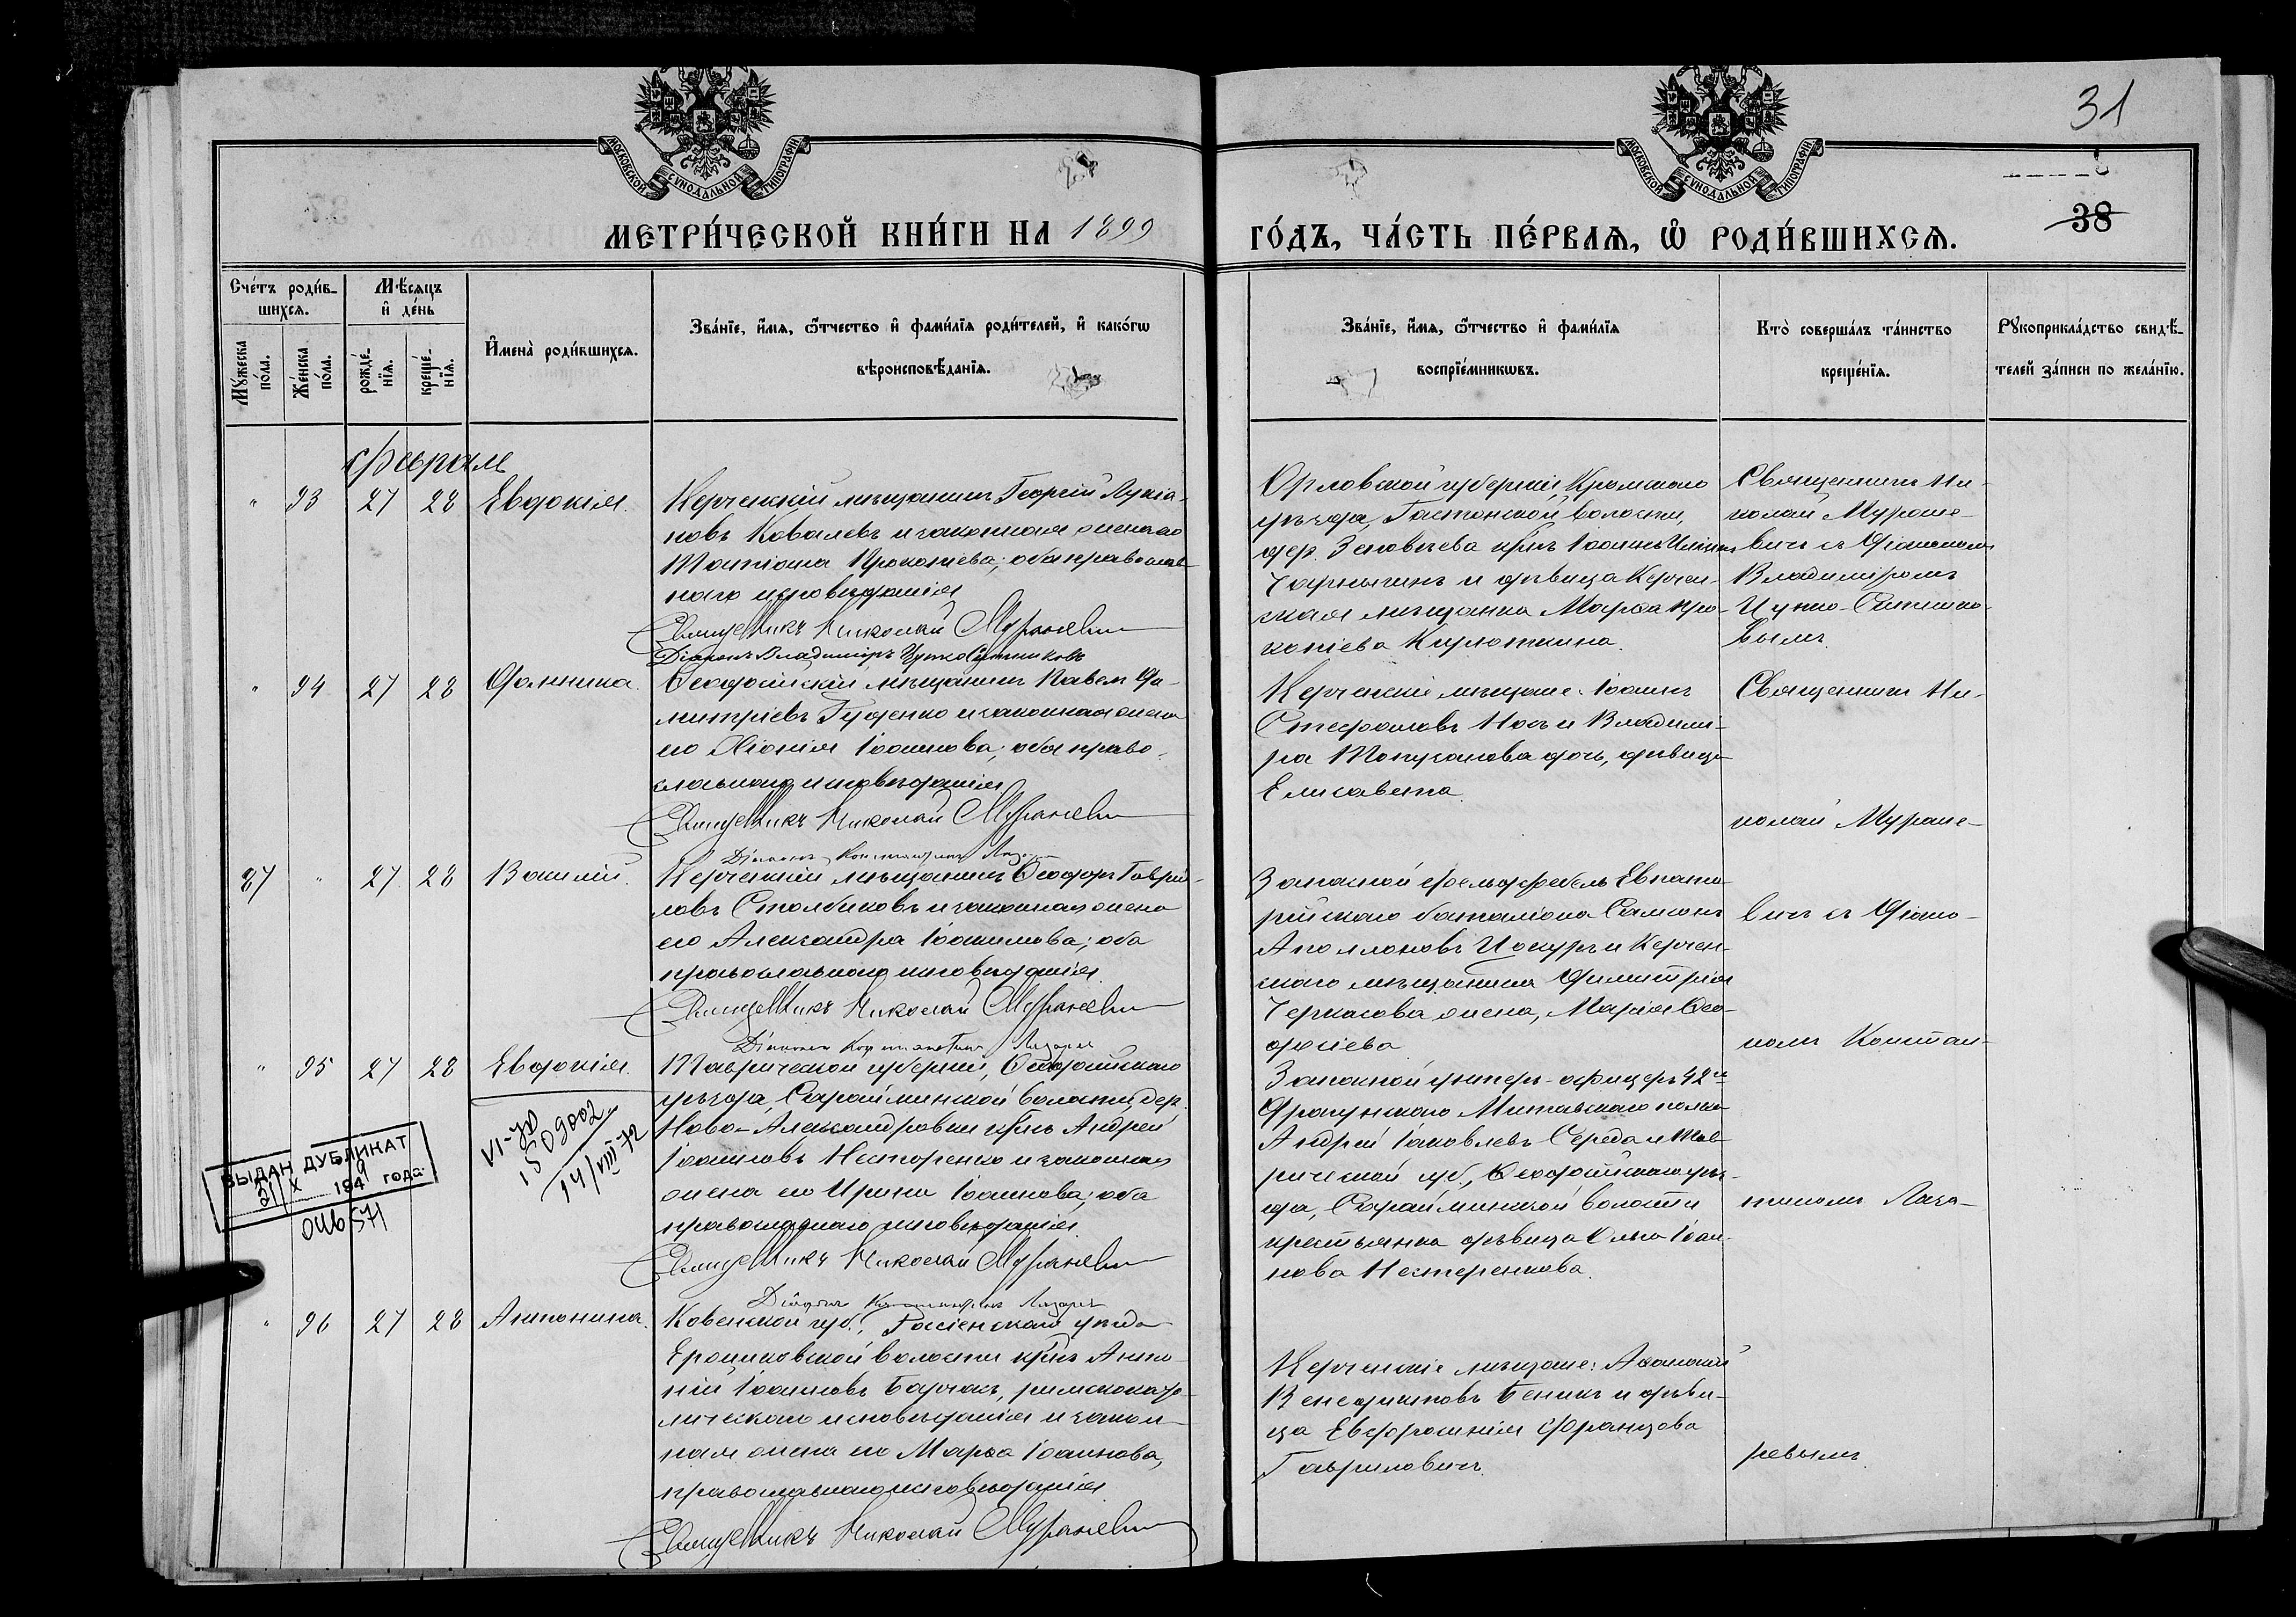 31
38
МОСКОВСКОЙ СѴНОДАЛЬНОЙ ТИПОГРАФІИ
МОСКОВСКОЙ СѴНОДАЛЬНОЙ ТИПОГРАФІИ
МЕТРИ́ЧЕСКОЙ КНИ́ГИ НА 1899
ГО́ДЪ, ЧА́СТЬ ПЕ́РВАѦ, Ѡ҆ РОДИ́ВШИХСѦ.
Сче́тъ роди́в-
шихсѧ.
Мѣ́сѧцъ
и҆ де́нь
Мꙋ́жеска
по́ла.
Же́нска
по́ла.
рожде́-
нїѧ.
креще́-
нїѧ.
И҆мена̀ роди́вшихсѧ.
Зва́нїе, и҆́мѧ, ѻ҆́тчество и҆ фами́лїѧ роди́телей, и҆ како́гѡ
вѣроисповѣ́данїѧ.
Зва́нїе, и҆́мѧ, ѻ҆́тчество и҆ фами́лїѧ
воспрїе́мникѡвъ.
Кто̀ соверша́лъ та́инство
креще́нїѧ.
Рꙋкоприкла́дство свидѣ́-
телей за́писи по жела́нїю.
Февраль
" 93 27 28 Евдокія.
Керченскій мѣщанинъ Георгій Лукіа-
новъ Ковалевъ и законная жена его
Татіана Прокопіева; оба православ-
наго исповѣданія
Священникъ Николай Мураневич
Діаконъ Владиміръ Цуко Ситниковъ
Орловской губерніи, Кромскаго
уѣзда, Гостомской волости,
дер. кр҃нъ Іоаннъ
и дѣвица Керчен-
ская мѣщанка Марѳа Про-
копіева
Священникъ Ни-
колай Муране-
вичъ съ Діакономъ
Владиміромъ
Цуко-Ситнико-
вымъ.
" 94 27 28 Домника.
Ѳеодосійскій мѣщанинъ Павелъ Ди-
митріевъ Гуденко и законная жена
его Хіонія Іоаннова; оба право-
славнаго исповѣданія
Священникъ Николай Мураневич
Діаконъ Константинъ Лазарев
Керченскіе мѣщане: Іоаннъ
Стефановъ Носъ и Владими-
ра дочь, дѣвица
Елисавета.
Священникъ Ни-
колай Муране-
вичъ съ Діако-
номъ Констан-
тиномъ Лаза-
ревымъ.
87 " 27 28 Василій.
Керченскій мѣщанинъ Ѳеодоръ Гаврі-
ловъ Столбиковъ и законная жена
его Александра Іоакимова; оба
православнаго исповѣданія
Священникъ Николай Мураневич
Діаконъ Константинъ Лазарев
Запасной фельдфебель Евпато-
рійскаго баталіона Самсонъ
Аполлоновъ и Керчен-
скаго мѣщанина Димитрія
Черкасова жена, Марія Ѳео-
досіева
" 95 27 28 Евдокія.
Таврической губерніи, Ѳеодосійскаго
уѣзда, Сарайминской волости, дер.
Ново-Александровки кр҃нъ Андрей
Іоанновъ Нестеренко и законная
жена его Ирина Іоаннова; оба
православнаго исповѣданія
Священникъ Николай Мураневич
Діаконъ Константинъ Лазарев
Запасной унтеръ-офицеръ 42го
Драгунскаго Митавскаго полка
Андрей Іаковлевъ Середа и Тав-
рической губ., Ѳеодосійскаго уѣз-
да, Сарайминской волости
крестьянка дѣвица Ольга Іоан-
нова Нестеренкова.
VI-ЯР
1509002
14/VIII-72
ВЫДАН ДУБЛИКАТ
21/X 1949 года
046571
" 96 27 28 Антонина.
Ковенской губ., Россіенскаго уѣзда
волости кр҃нъ Анто-
ній Іоанновъ римскокато-
лическаго исповѣданія и закон-
ная жена его Марѳа Іоаннова,
православнаго исповѣданія
Священникъ Николай Мураневич
Керченскіе мѣщане: Аѳанасій
Венедиктовъ и дѣви-
ца Евфросинія Францова
Гавриловичъ.